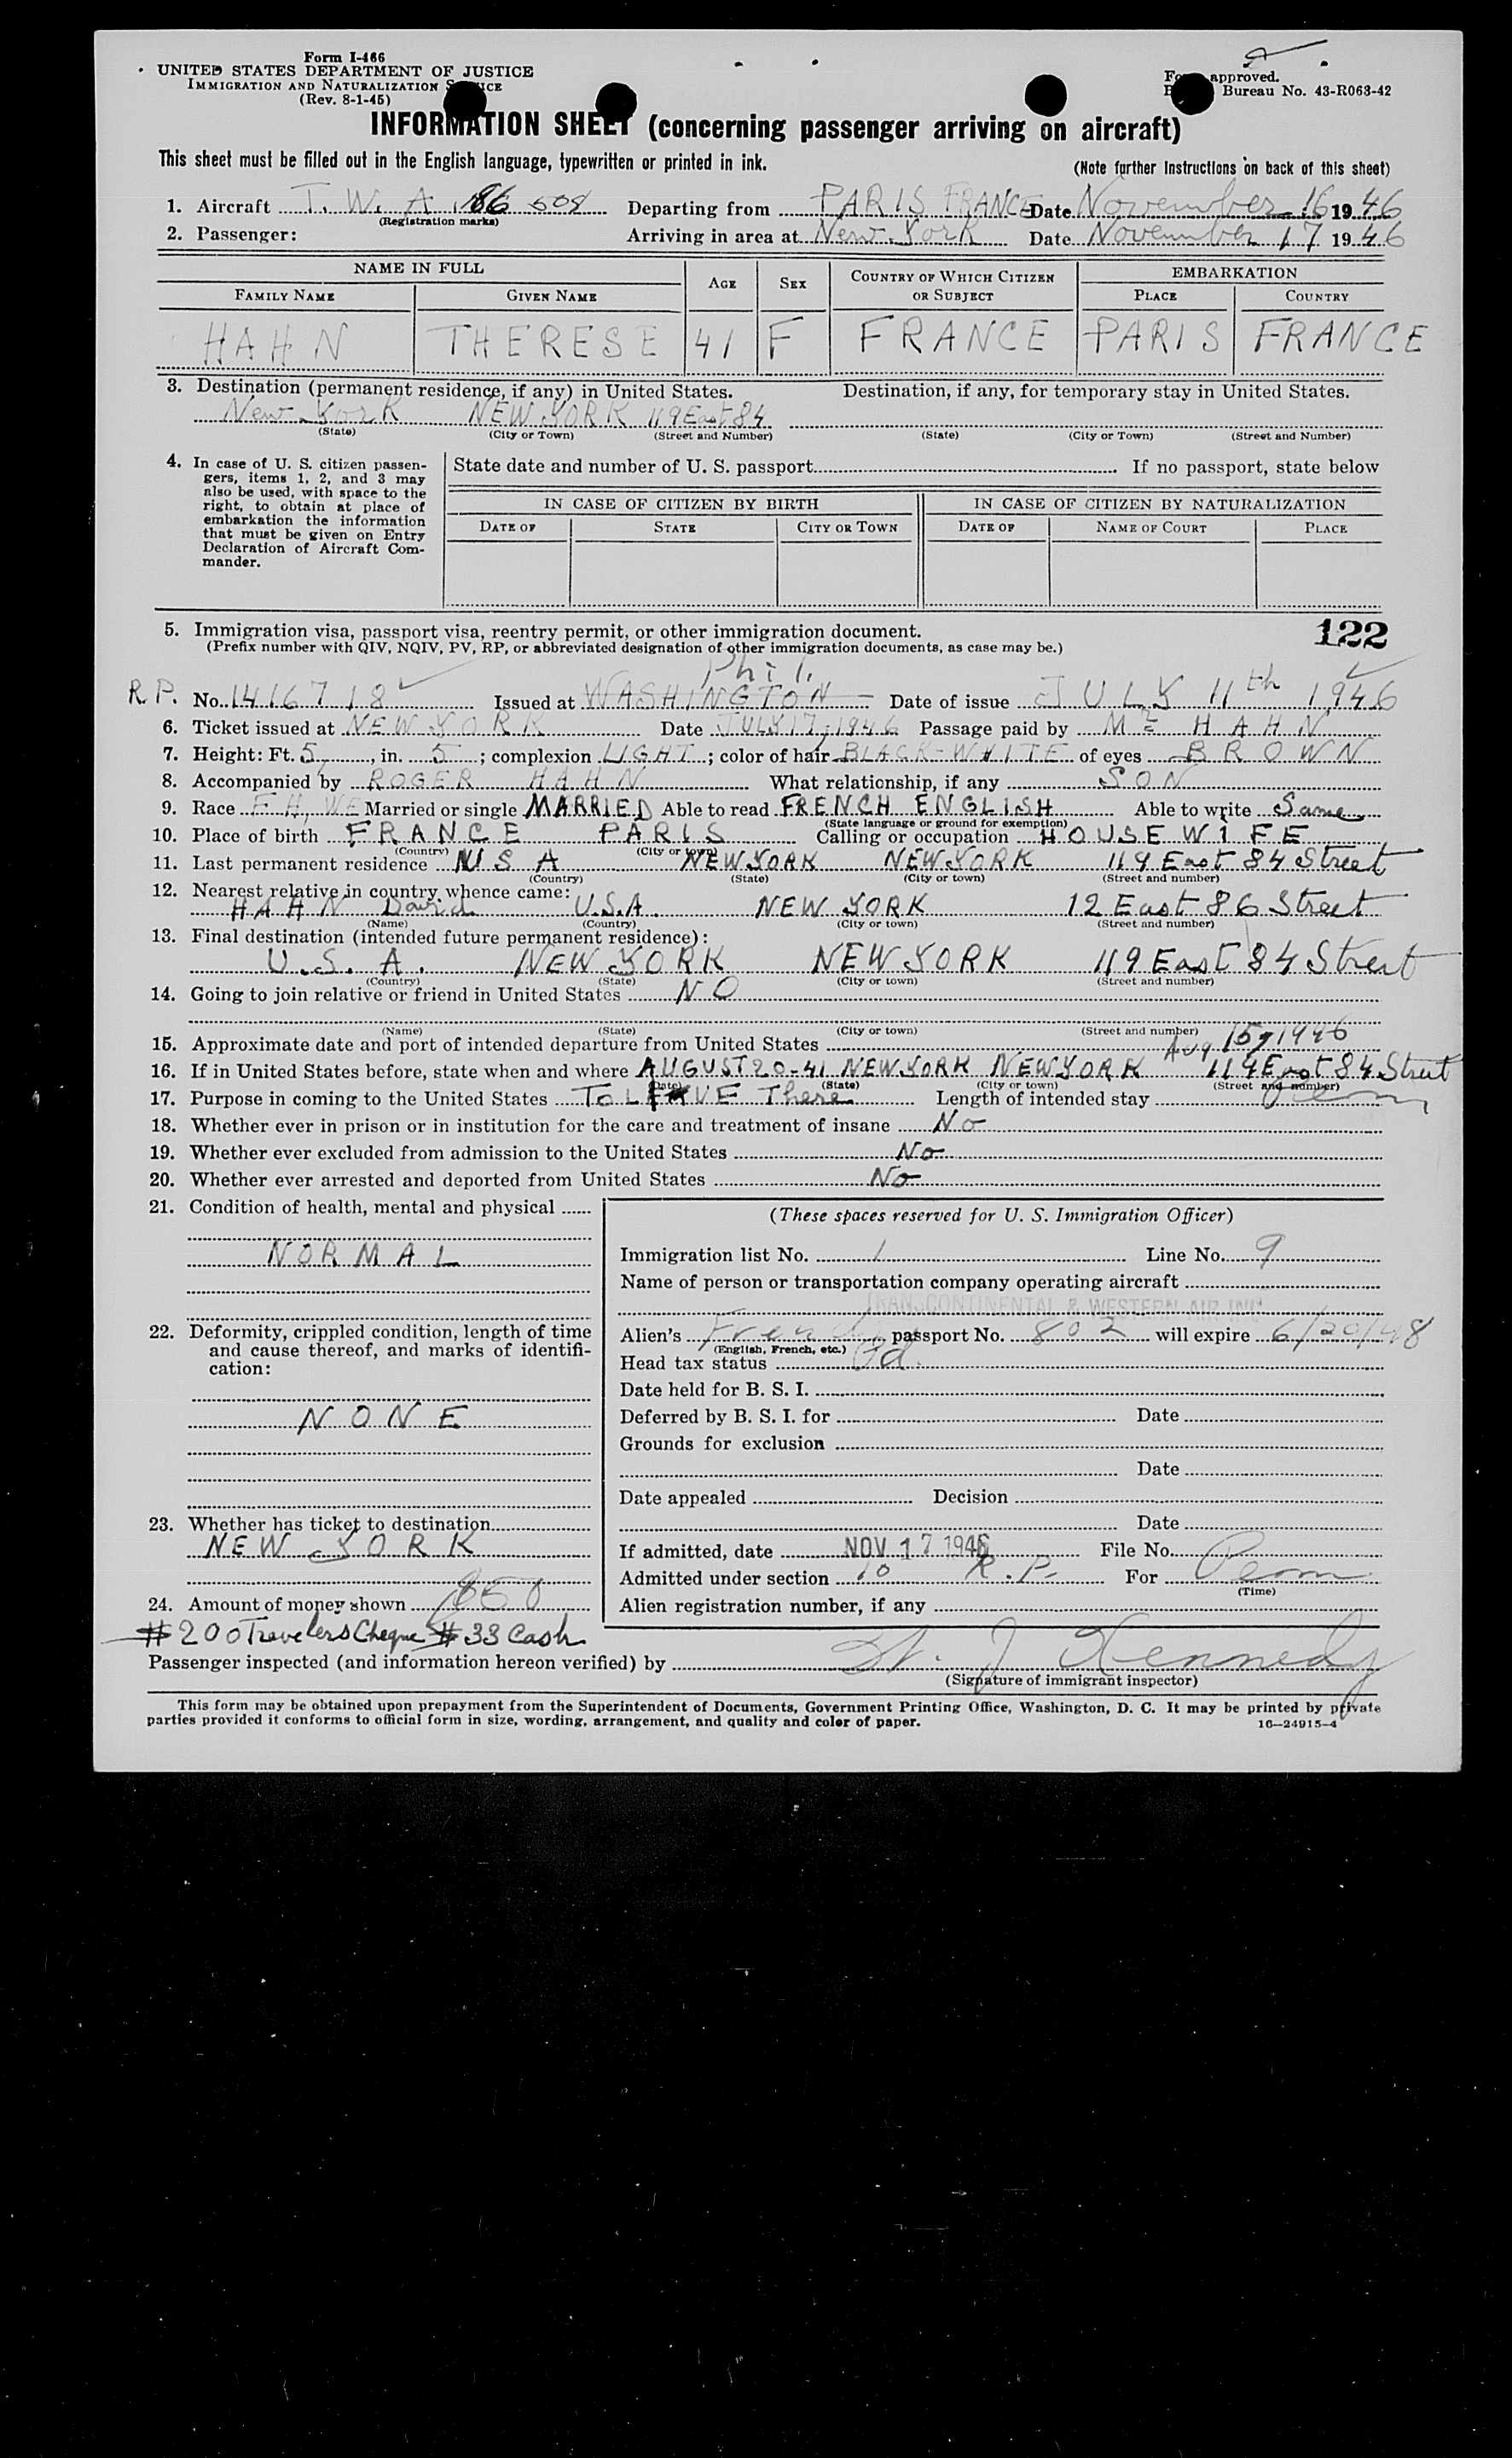 Form I-466
UNITED STATES DEPARTMENT OF JUSTICE
IMMIGRATION AND NATURALIZATION SERVICE
(Rev. 8-1-45)
Form approved.
Bureau No. 43-R063-42
INFORMATION SHEET (concerning passenger arriving on aircraft)
This sheet must be filled out in the English language, typewritten or printed in ink.
(Note further Instructions on back of this sheet)
1. Aircraft T. W. A. 86 508 Departing from PARIS FRANCE Date November 16 19 46
(Registration marks)
2. Passenger: Arriving in area at New York Date November 17 19 46
NAME IN FULL AGE SEX COUNTRY OF WHICH CITIZEN OR SUBJECT EMBARKATION
FAMILY NAME GIVEN NAME PLACE COUNTRY
HAHN THERESE 41 F FRANCE PARIS FRANCE
3. Destination (permanent residence, if any) in United States. Destination, if any, for temporary stay in United States.
New York NEW YORK 119 East 84
(State) (City or Town) (Street and Number) (State) (City or Town) (Street and Number)
4. In case of U. S. citizen passengers, items 1, 2, and 3 may also be used, with space to the right, to obtain at place of embarkation the information that must be given on Entry Declaration of Aircraft Commander.
State date and number of U. S. passport If no passport, state below
IN CASE OF CITIZEN BY BIRTH IN CASE OF CITIZEN BY NATURALIZATION
DATE OF STATE CITY OR TOWN DATE OF NAME OF COURT PLACE
5. Immigration visa, passport visa, reentry permit, or other immigration document.
122
(Prefix number with QIV, NQIV, PV, RP, or abbreviated designation of other immigration documents, as case may be.)
Phil.
R.P. No. 1416718 Issued at WASHINGTON Date of issue JULY 11th 1946
6. Ticket issued at NEW YORK Date JULY 17, 1946 Passage paid by Mr HAHN
7. Height: Ft. 5, in. 5; complexion LIGHT; color of hair BLACK-WHITE of eyes BROWN
8. Accompanied by ROGER HAHN What relationship, if any SON
9. Race Married or single MARRIED Able to read FRENCH ENGLISH Able to write Same
(State language or ground for exemption)
10. Place of birth FRANCE PARIS Calling or occupation HOUSEWIFE
(Country) (City or town)
11. Last permanent residence USA NEW YORK NEW YORK 119 East 84 Street
(Country) (State) (City or town) (Street and number)
12. Nearest relative in country whence came:
HAHN David U.S.A. NEW YORK 12 East 86 Street
(Name) (Country) (City or town) (Street and number)
13. Final destination (intended future permanent residence):
U.S.A. NEW YORK NEW YORK 119 East 84 Street
(Country) (State) (City or town) (Street and number)
14. Going to join relative or friend in United States NO
(Name) (State) (City or town) (Street and number)
15. Approximate date and port of intended departure from United States Aug 15, 1946
16. If in United States before, state when and where AUGUST 20-41 NEW YORK NEW YORK 119 East 84 Street
(Date) (State) (City or town) (Street and number)
17. Purpose in coming to the United States To LEIVE There Length of intended stay Perm
18. Whether ever in prison or in institution for the care and treatment of insane No
19. Whether ever excluded from admission to the United States No
20. Whether ever arrested and deported from United States No
21. Condition of health, mental and physical
NORMAL
22. Deformity, crippled condition, length of time and cause thereof, and marks of identification:
NONE
23. Whether has ticket to destination
NEW YORK
24. Amount of money shown
$200 Travelers Cheque $33 Cash
(These spaces reserved for U. S. Immigration Officer)
Immigration list No. 1 Line No. 9
Name of person or transportation company operating aircraft
TRANSCONTINENTAL & WESTERN AIR INC
Alien's French passport No. 802 will expire 6/20/48
(English, French, etc.)
Head tax status
Date held for B. S. I.
Deferred by B. S. I. for Date
Grounds for exclusion
Date
Date appealed Decision
Date
If admitted, date NOV 17 1946 File No.
Admitted under section 10 R.P. For Perm
(Time)
Alien registration number, if any
Passenger inspected (and information hereon verified) by J Kennedy
(Signature of immigrant inspector)
This form may be obtained upon prepayment from the Superintendent of Documents, Government Printing Office, Washington, D. C. It may be printed by private
parties provided it conforms to official form in size, wording, arrangement, and quality and color of paper.
16—24915-4